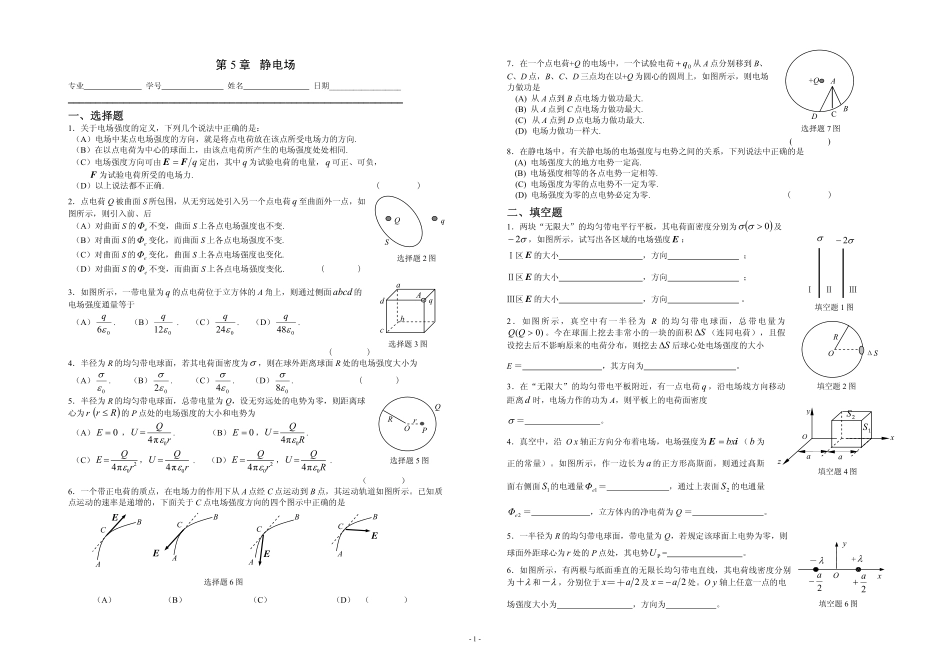 第 5 章 静电场
专业 学号 姓名 日期
一、选择题
1．关于电场强度的定义，下列几个说法中正确的是：
（A）电场中某点电场强度的方向，就是将点电荷放在该点所受电场力的方向.
（B）在以点电荷为中心的球面上，由该点电荷所产生的电场强度处处相同.
（C）电场强度方向可由 E = F/q 定出，其中 q 为试验电荷的电量，q 可正、可负，
F 为试验电荷所受的电场力.
（D）以上说法都不正确. （ ）
2．点电荷 Q 被曲面 S 所包围，从无穷远处引入另一个点电荷 q 至曲面外一点，如
图所示，则引入前、后
（A）对曲面 S 的 Φe 不变，曲面 S 上各点电场强度也不变.
（B）对曲面 S 的 Φe 变化，而曲面 S 上各点电场强度不变.
（C）对曲面 S 的 Φe 变化，曲面 S 上各点电场强度也变化.
（D）对曲面 S 的 Φe 不变，而曲面 S 上各点电场强度变化. （ ）
Q q
S
选择题 2 图
3．如图所示，一带电量为 q 的点电荷位于立方体的 A 角上，则通过侧面 abcd 的
电场强度通量等于
（A） q/6ε0 . （B） q/12ε0 . （C） q/24ε0 . （D） q/48ε0 .
（ ）
a
d A q
b
c
选择题 3 图
4．半径为 R 的均匀带电球面，若其电荷面密度为 σ，则在球外距离球面 R 处的电场强度大小为
（A） σ/ε0 . （B） σ/2ε0 . （C） σ/4ε0 . （D） σ/8ε0 . （ ）
5．半径为 R 的均匀带电球面，总带电量为 Q，设无穷远处的电势为零，则距离球
心为 r (r ≤ R) 的 P 点处的电场强度的大小和电势为
（A） E = 0 ，U = Q/4πε0r . （B） E = 0 ，U = Q/4πε0R .
（C） E = Q/4πε0r² ，U = Q/4πε0r . （D） E = Q/4πε0r² ，U = Q/4πε0R .
（ ）
Q
R O r
P
选择题 5 图
6．一个带正电荷的质点，在电场力的作用下从 A 点经 C 点运动到 B 点，其运动轨道如图所示。已知质
点运动的速率是递增的，下面关于 C 点电场强度方向的四个图示中正确的是
E B C A
B C E A
B C A E
B C E A
选择题 6 图
（A） （B） （C） （D） （ ）
7．在一个点电荷+Q 的电场中，一个试验电荷 +q0 从 A 点分别移到 B、
C、D 点，B、C、D 三点均在以+Q 为圆心的圆周上，如图所示，则电场
力做功是
(A) 从 A 点到 B 点电场力做功最大.
(B) 从 A 点到 C 点电场力做功最大.
(C) 从 A 点到 D 点电场力做功最大.
(D) 电场力做功一样大.
（ ）
+Q A
D C B
选择题 7 图
8．在静电场中，有关静电场的电场强度与电势之间的关系，下列说法中正确的是
(A) 电场强度大的地方电势一定高.
(B) 电场强度相等的各点电势一定相等.
(C) 电场强度为零的点电势不一定为零.
(D) 电场强度为零的点电势必定为零. （ ）
二、填空题
1．两块“无限大”的均匀带电平行平板，其电荷面密度分别为 σ(σ > 0) 及
−2σ，如图所示，试写出各区域的电场强度 E：
Ⅰ区 E 的大小 ，方向 ；
Ⅱ区 E 的大小 ，方向 ；
Ⅲ区 E 的大小 ，方向 。
σ −2σ
Ⅰ Ⅱ Ⅲ
填空题 1 图
2．如图所示，真空中有一半径为 R 的均匀带电球面，总带电量为
Q(Q > 0)。今在球面上挖去非常小的一块的面积 ΔS（连同电荷），且假
设挖去后不影响原来的电荷分布，则挖去 ΔS 后球心处电场强度的大小
E = ，其方向为 。
R
O ΔS
填空题 2 图
3．在“无限大”的均匀带电平板附近，有一点电荷 q，沿电场线方向移动
距离 d 时，电场力作的功为 A，则平板上的电荷面密度
σ = 。
4．真空中，沿 Ox 轴正方向分布着电场，电场强度为 E = bxi（b 为
正的常量）。如图所示，作一边长为 a 的正方形高斯面，则通过高斯
面右侧面 S1 的电通量 Φe1 = ，通过上表面 S2 的电通量
Φe2 = ，立方体内的净电荷为 Q = 。
y
S2
S1
O x
z a a
填空题 4 图
5．一半径为 R 的均匀带电球面，带电量为 Q，若规定该球面上电势为零，则
球面外距球心为 r 处的 P 点处，其电势 UP = 。
6．如图所示，有两根与纸面垂直的无限长均匀带电直线，其电荷线密度分别
为 +λ 和 −λ，分别位于 x = +a/2 及 x = −a/2 处，Oy 轴上任意一点的电
场强度大小为 ，方向为 。
y
−λ +λ
−a/2 O +a/2 x
填空题 6 图
- 1 -